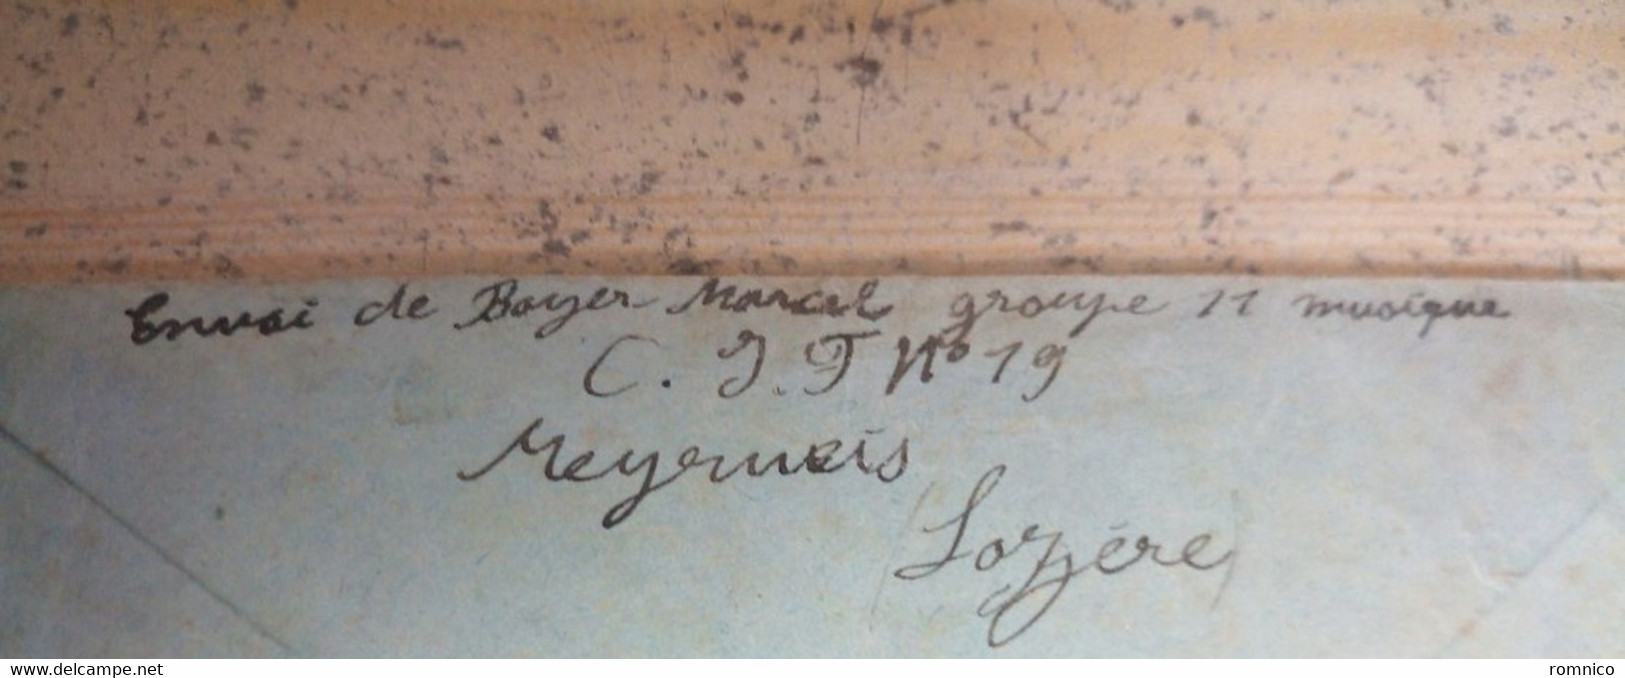 Envoi de Boyer Marcel groupe 11 musique
C. J. F N° 19
Meyrueis
(Lozère)
www.delcampe.net
romnico